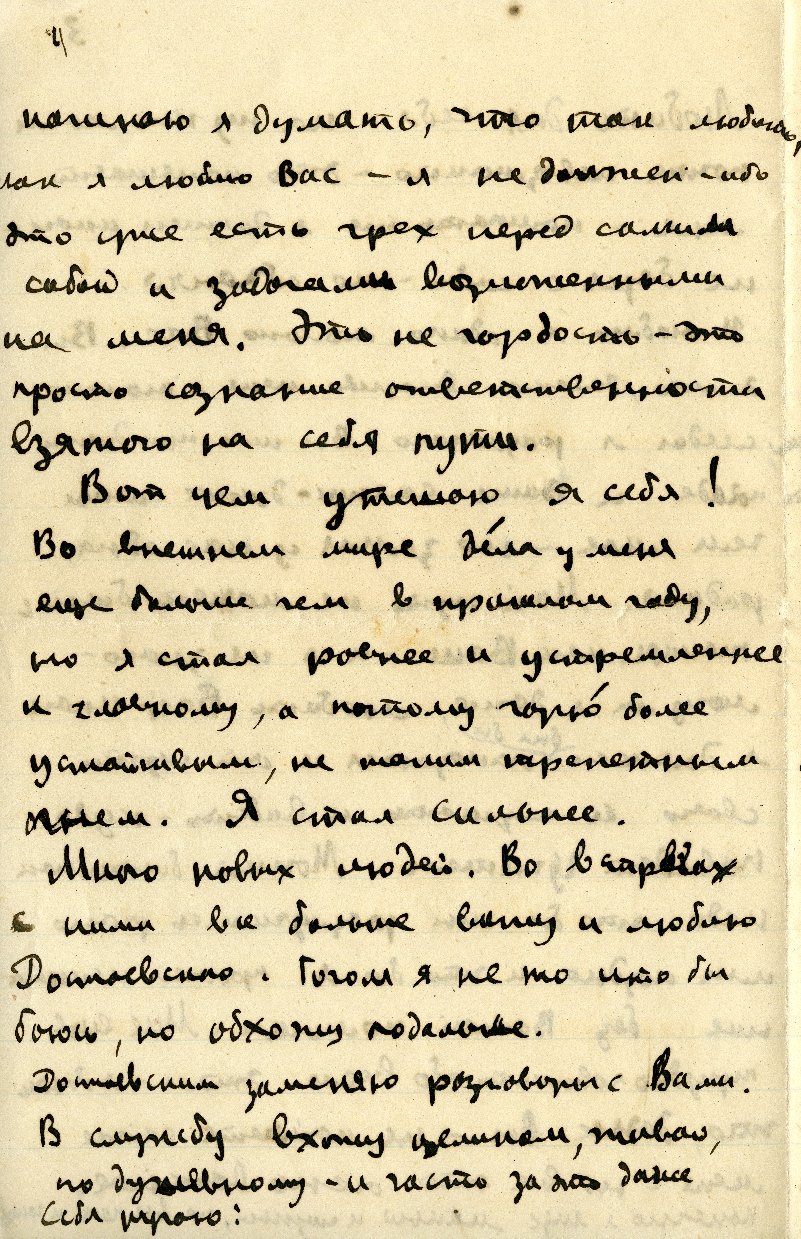 4
начинаю я думать, что так любить,
как я люблю Вас – я не должен – ибо
это уже есть грех перед самим
собой и задачами возложенными
на меня. Это не гордость – это
просто сознание ответственности
взятого на себя пути.
Вот чем утешаю я себя!
Во внешнем мире де́ла у меня
еще больше чем в прошлом году,
но я стал ровнее и устремленнее
к главному, а потому горю́ более
устойчивым, не таким трепетным
огнем. Я стал сильнее.
Много новых людей. Во встречах
с ними все больше вижу и люблю
Достоевского. Гоголя я не то что бы
боюсь, но обхожу подальше.
Достоевским заменяю разговоры с Вами.
В службу вхожу целиком, живао,
по душевному – и часто за это даже
себя